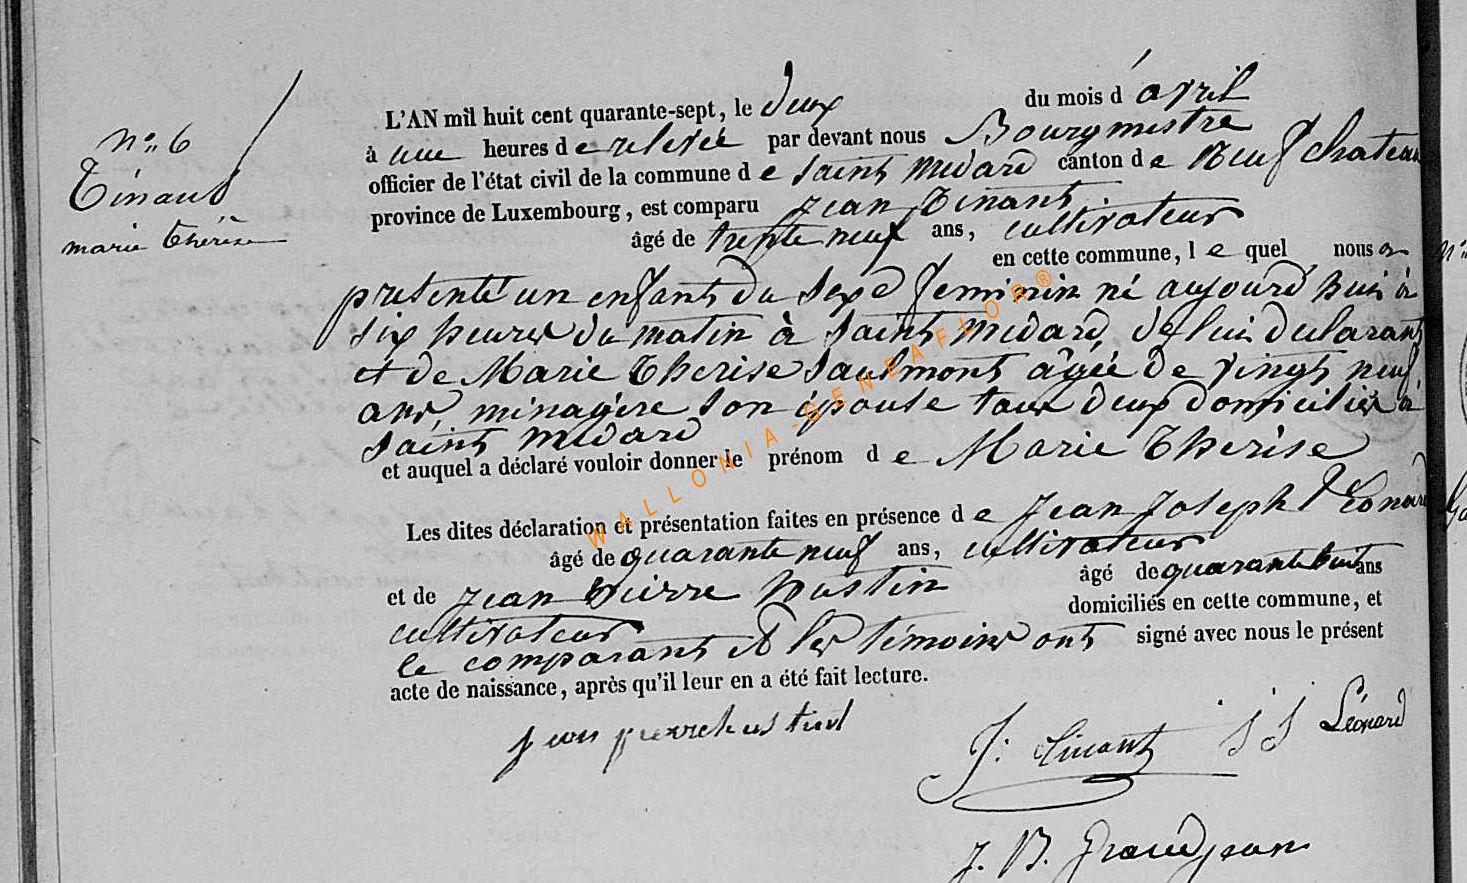 N° 6
Tinant
marie thérèse
L'AN mil huit cent quarante-sept, le deux du mois d'avril
à une heures de relevée par devant nous Bourgmestre
officier de l'état civil de la commune de Saint Médard canton de Neufchateau
province de Luxembourg, est comparu Jean Tinant
âgé de trente neuf ans, cultivateur
en cette commune, lequel nous a
présenté un enfant du sexe feminin né aujourd'hui à
six heures du matin à Saint Médard, de lui déclarant
et de Marie Thérèse Saulmont âgée de vingt neuf
ans, ménagère son épouse tous deux domiciliés à
Saint Médard
et auquel a déclaré vouloir donner le prénom de Marie Thérèse
Les dites déclaration et présentation faites en présence de Jean Joseph Léonard
âgé de quarante neuf ans, cultivateur
et de Jean Pierre Hustin âgé de quarante huit ans
cultivateur domiciliés en cette commune, et
le comparant et les témoins ont signé avec nous le présent
acte de naissance, après qu'il leur en a été fait lecture.
J: Tinant J J Léonard
J. B. Grandjean
WALLONIA-GENEAFLOR®